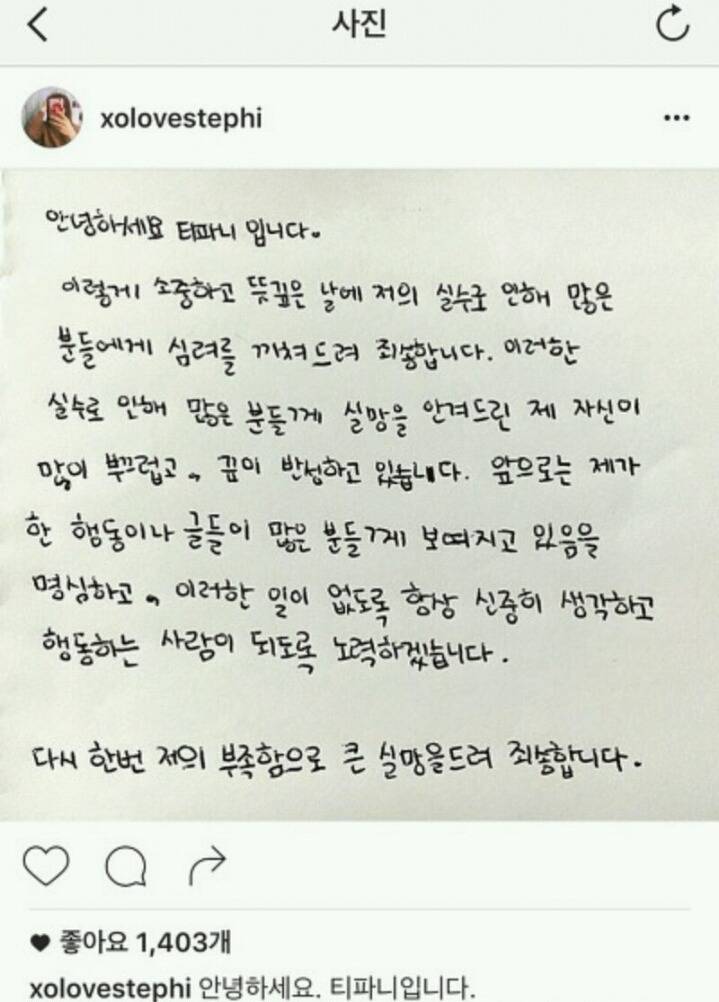 사진
xolovestephi
안녕하세요 티파니 입니다.
이렇게 소중하고 뜻깊은 날에 저의 실수로 인해 많은
분들에게 심려를 끼쳐드려 죄송합니다. 이러한
실수로 인해 많은 분들께 실망을 안겨드린 제 자신이
많이 부끄럽고, 깊이 반성하고 있습니다. 앞으로는 제가
한 행동이나 글들이 많은 분들께 보여지고 있음을
명심하고, 이러한 일이 없도록 항상 신중히 생각하고
행동하는 사람이 되도록 노력하겠습니다.
다시 한번 저의 부족함으로 큰 실망을드려 죄송합니다.
좋아요 1,403개
xolovestephi 안녕하세요. 티파니입니다.